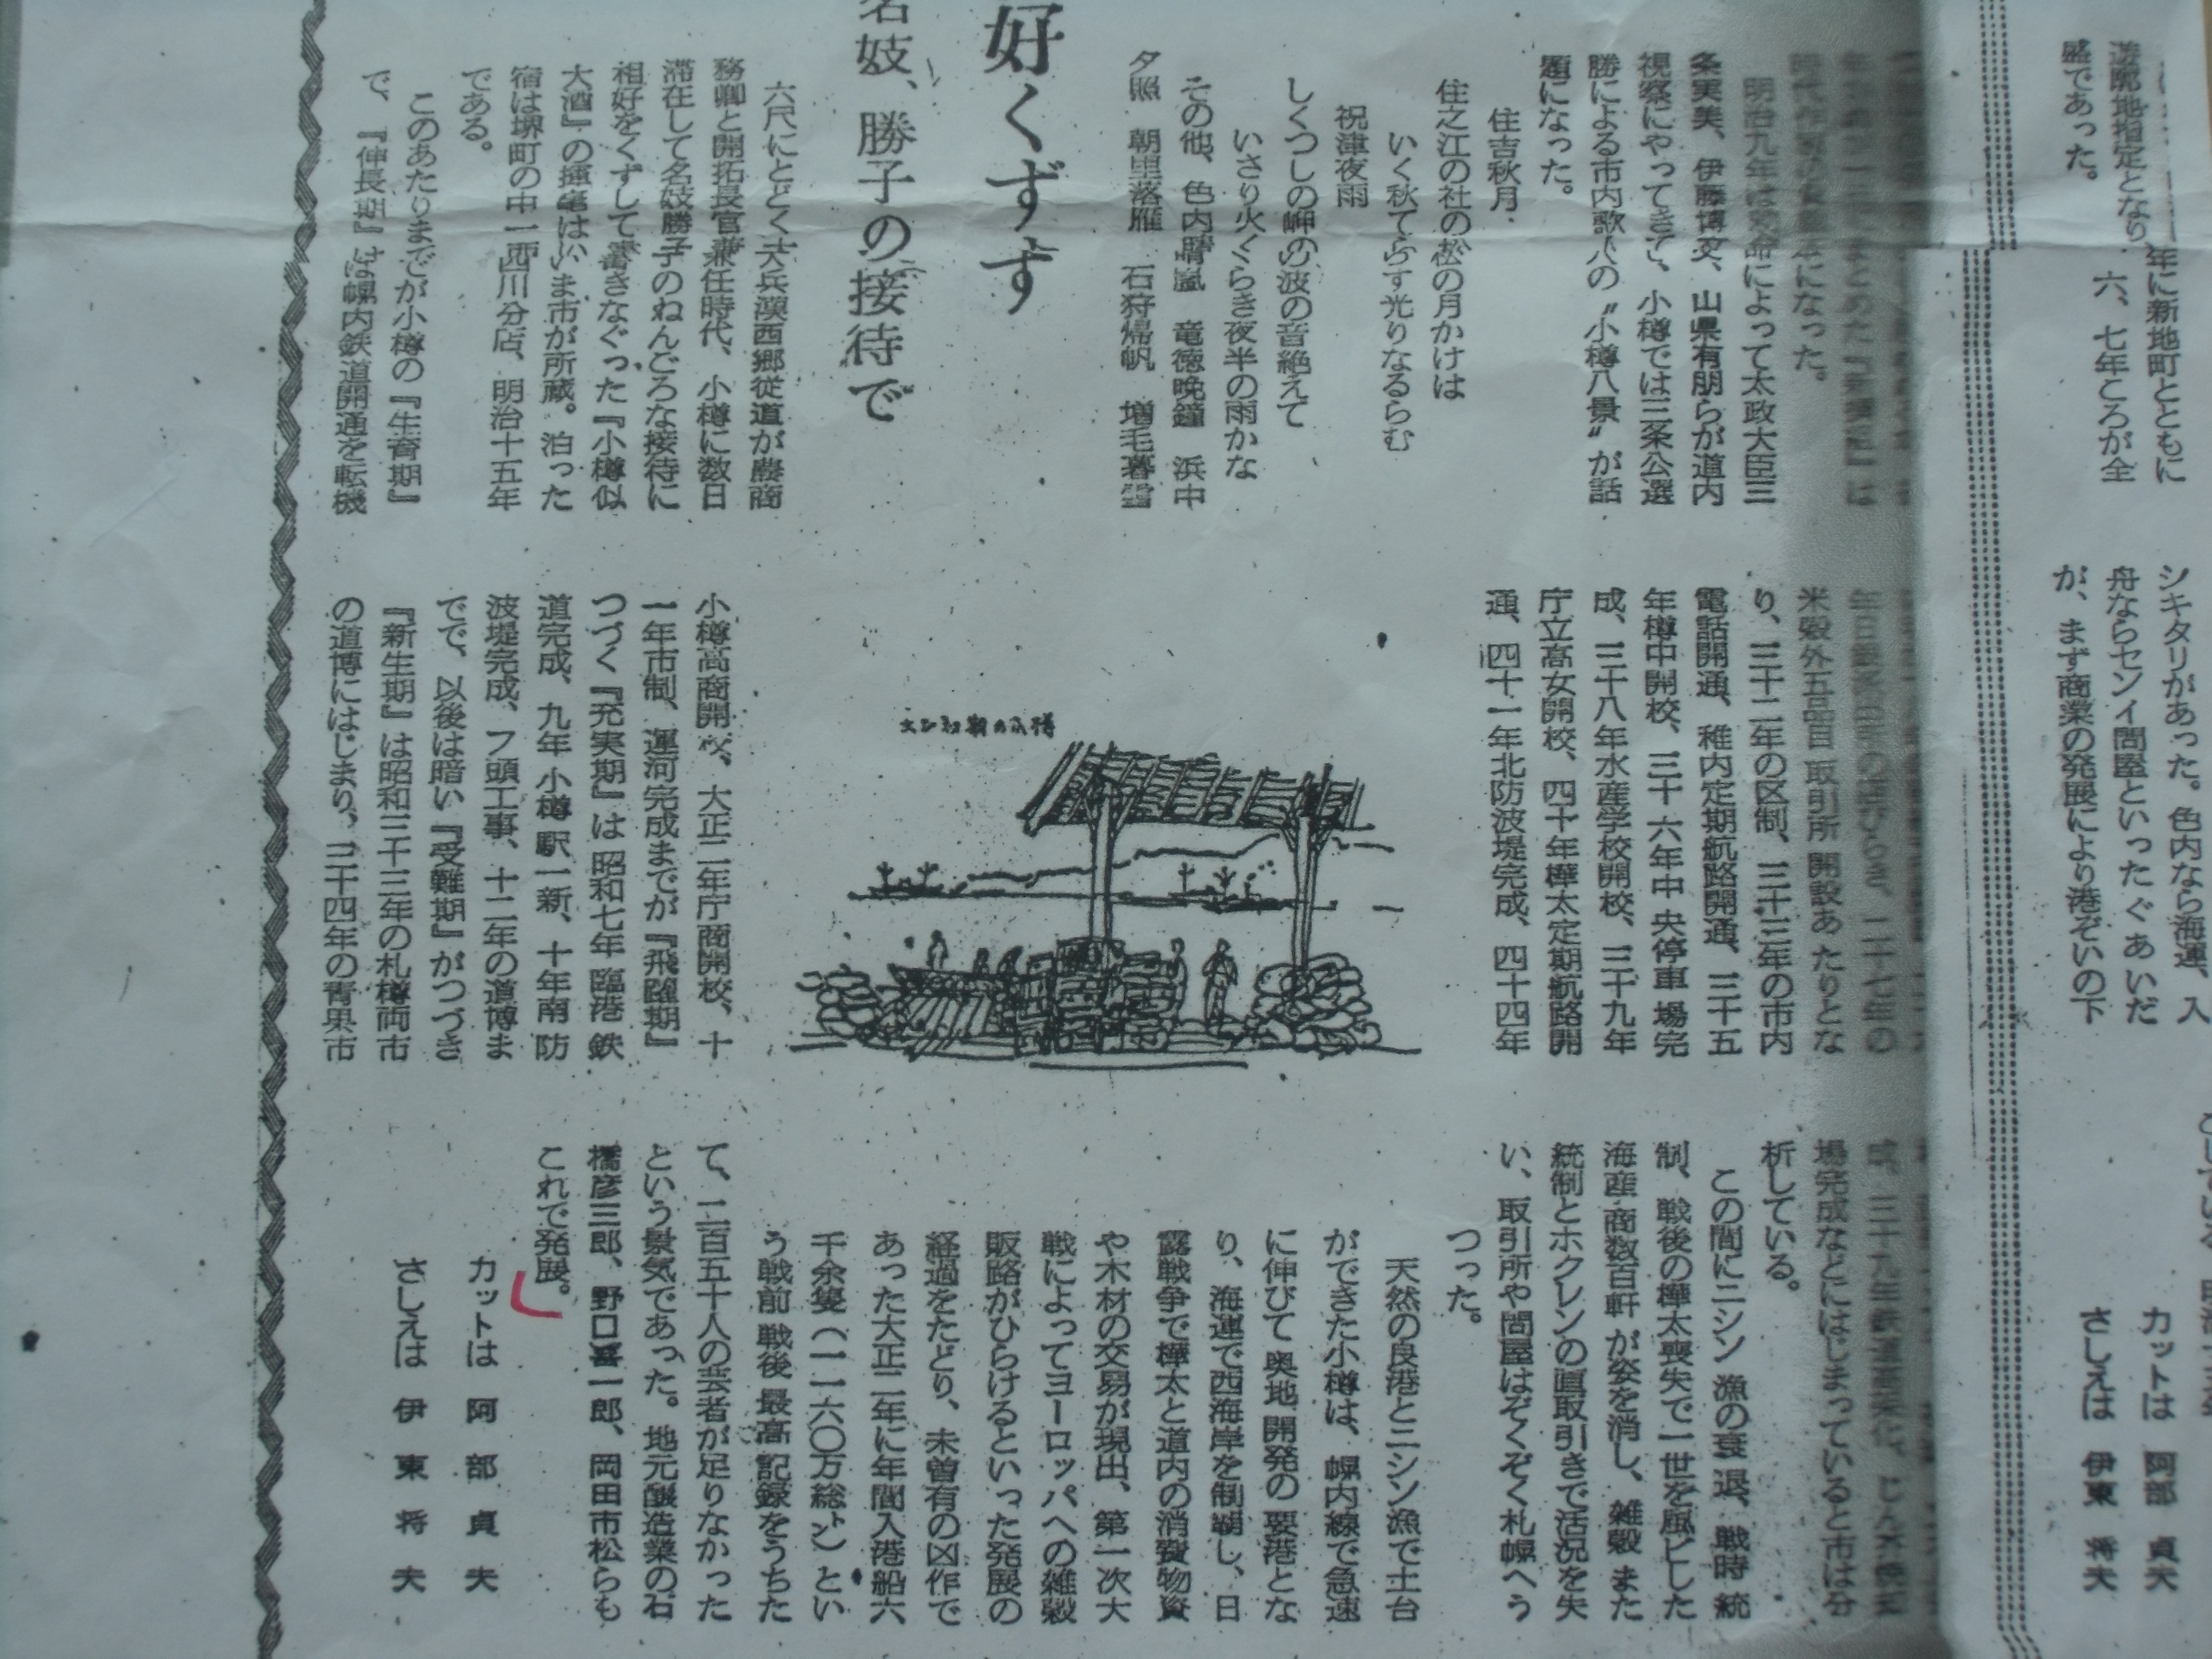 年に新地町とともに
遊郭地指定となり、六、七年ころが全
盛であった。
シキタリがあった。色内なら海運、入
舟ならセンイ問屋といったぐあいだ
が、まず商業の発展により港ぞいの下
カットは 阿部 貞夫
さしえは 伊東 将夫
になった。
明治九年は勅命によって太政大臣三
条実美、伊藤博文、山県有朋らが道内
視察にやってきて、小樽では三条公選
勝による市内歌人の〝小樽八景〟が話
題になった。
住吉秋月
住之江の社の松の月かけは
いく秋てらす光りなるらむ
祝津夜雨
しくつしの岬の波の音絶えて
いさり火くらき夜半の雨かな
その他、色内晴嵐 竜徳晩鐘 浜中
夕照 朝里落雁 石狩帰帆 増毛暮雪
好くずす
名妓、勝子の接待で
六尺にとどく大兵漢西郷従道が農商
務卿と開拓長官兼任時代、小樽に数日
滞在して名妓勝子のねんごろな接待に
相好をくずして書きなぐった『小樽似
大酒』の揮毫はいま市が所蔵。泊った
宿は堺町の中一西川分店、明治十五年
である。
このあたりまでが小樽の『生育期』
で、『伸長期』は幌内鉄道開通を転機
年の
米穀外五品目取引所開設あたりとな
り、三十二年の区制、三十三年の市内
電話開通、稚内定期航路開通、三十五
年樽中開校、三十六年中央停車場完
成、三十八年水産学校開校、三十九年
庁立高女開校、四十年樺太定期航路開
通、四十一年北防波堤完成、四十四年
大正初期の小樽
小樽高商開校、大正二年庁商開校、十
一年市制、運河完成までが『飛躍期』
つづく『充実期』は昭和七年臨港鉄
道完成、九年小樽駅一新、十年南防
波堤完成、フ頭工事、十二年の道博ま
でで、以後は暗い『受難期』がつづき
『新生期』は昭和三十三年の札樽両市
の道博にはじまり、三十四年の青果市
場完成などにはじまっていると市は分
析している。
この間にニシン漁の衰退、戦時統
制、戦後の樺太喪失で一世を風ビした
海産商数百軒が姿を消し、雑穀また
統制とホクレンの直取引きで活況を失
い、取引所や問屋はぞくぞく札幌へう
つった。
天然の良港とニシン漁で土台
ができた小樽は、幌内線で急速
に伸びて奥地開発の要港とな
り、海運で西海岸を制覇し、日
露戦争で樺太と道内の消費物資
や木材の交易が現出、第一次大
戦によってヨーロッパへの雑穀
販路がひらけるといった発展の
経過をたどり、未曽有の凶作で
あった大正二年に年間入港船六
千余隻(一一六〇万総トン)とい
う戦前戦後最高記録をうちた
て、二百五十人の芸者が足りなかった
という景気であった。地元醸造業の石
橋彦三郎、野口喜一郎、岡田市松らも
これで発展。
カットは 阿部 貞夫
さしえは 伊東 将夫